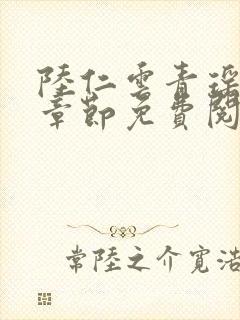 陸仁雲青瑶
章節免費閱
常陸之介寛浩